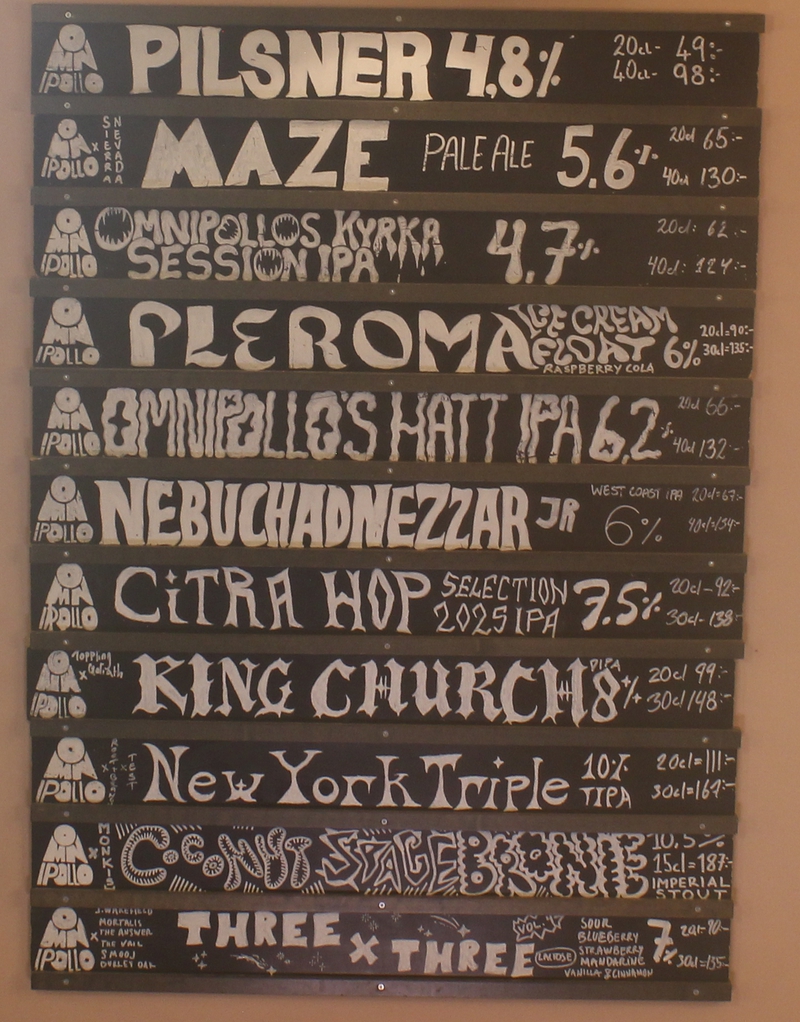 OMNIPOLLO PILSNER 4,8% 20cl- 49:-
40cl- 98:-
OMNIPOLLO x SIERRA NEVADA MAZE PALE ALE 5.6% 20cl 65:-
40cl 130:-
OMNIPOLLO OMNIPOLLOS KYRKA
SESSION IPA 4.7% 20cl: 62:-
40cl: 124:-
OMNIPOLLO PLEROMA ICE CREAM
FLOAT
RASPBERRY COLA 6% 20cl=90:-
30cl=135:-
OMNIPOLLO OMNIPOLLO'S HATT IPA 6,2% 20cl 66:-
40cl 132:-
OMNIPOLLO NEBUCHADNEZZAR JR WEST COAST IPA 6% 20cl=67:-
40cl=134:-
OMNIPOLLO CiTRA HOP SELECTION
2025 IPA 7.5% 20cl-92:-
30cl-138:-
OMNIPOLLO x Toppling Goliath KING CHURCH DIPA 8% 20cl 99:-
30cl/148:-
OMNIPOLLO New York Triple 10%
TIPA 20cl=111:-
OMNIPOLLO x MONKIS COCONUT STAGE BROWNIE 10,5%
15cl=187:-
IMPERIAL
STOUT
OMNIPOLLO x J. WAKEFIELD
MORTALIS
THE ANSWER
THE VEIL
SMOOJ
THREE x THREE VOL. LACTOSE
SOUR
BLUEBERRY
STRAWBERRY
MANDARINE
VANILLA & CINNAMON
7% 20cl-90:-
30cl=135:-